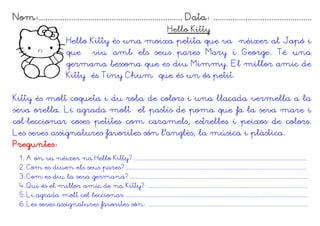 Nom:.................................................... Data: ..........................................
Hello Kitty
Hello Kitty és una moixa petita que va néixer al Japó i
que viu amb els seus pares Mary i George. Té una
germana bessona que es diu Mimmy. El millor amic de
Kitty és Tiny Chum que és un ós petit.
Kitty és molt coqueta i du roba de colors i una llaçada vermella a la
seva orella. Li agrada molt el pastís de poma que fa la seva mare i
col·leccionar coses petites com caramels, estrelles i peixos de colors.
Les seves assignatures favorites són l'anglès, la música i plàstica.
Preguntes:
1. A on va néixer na Hello Kitty? ........................................................................
2. Com es diuen els seus pares? ........................................................................
3. Com es diu la seva germana? ........................................................................
4. Qui és el millor amic de na Kitty? ........................................................................
5. Li agrada molt col·leccionar ........................................................................
6. Les seves assignatures favorites són: ........................................................................